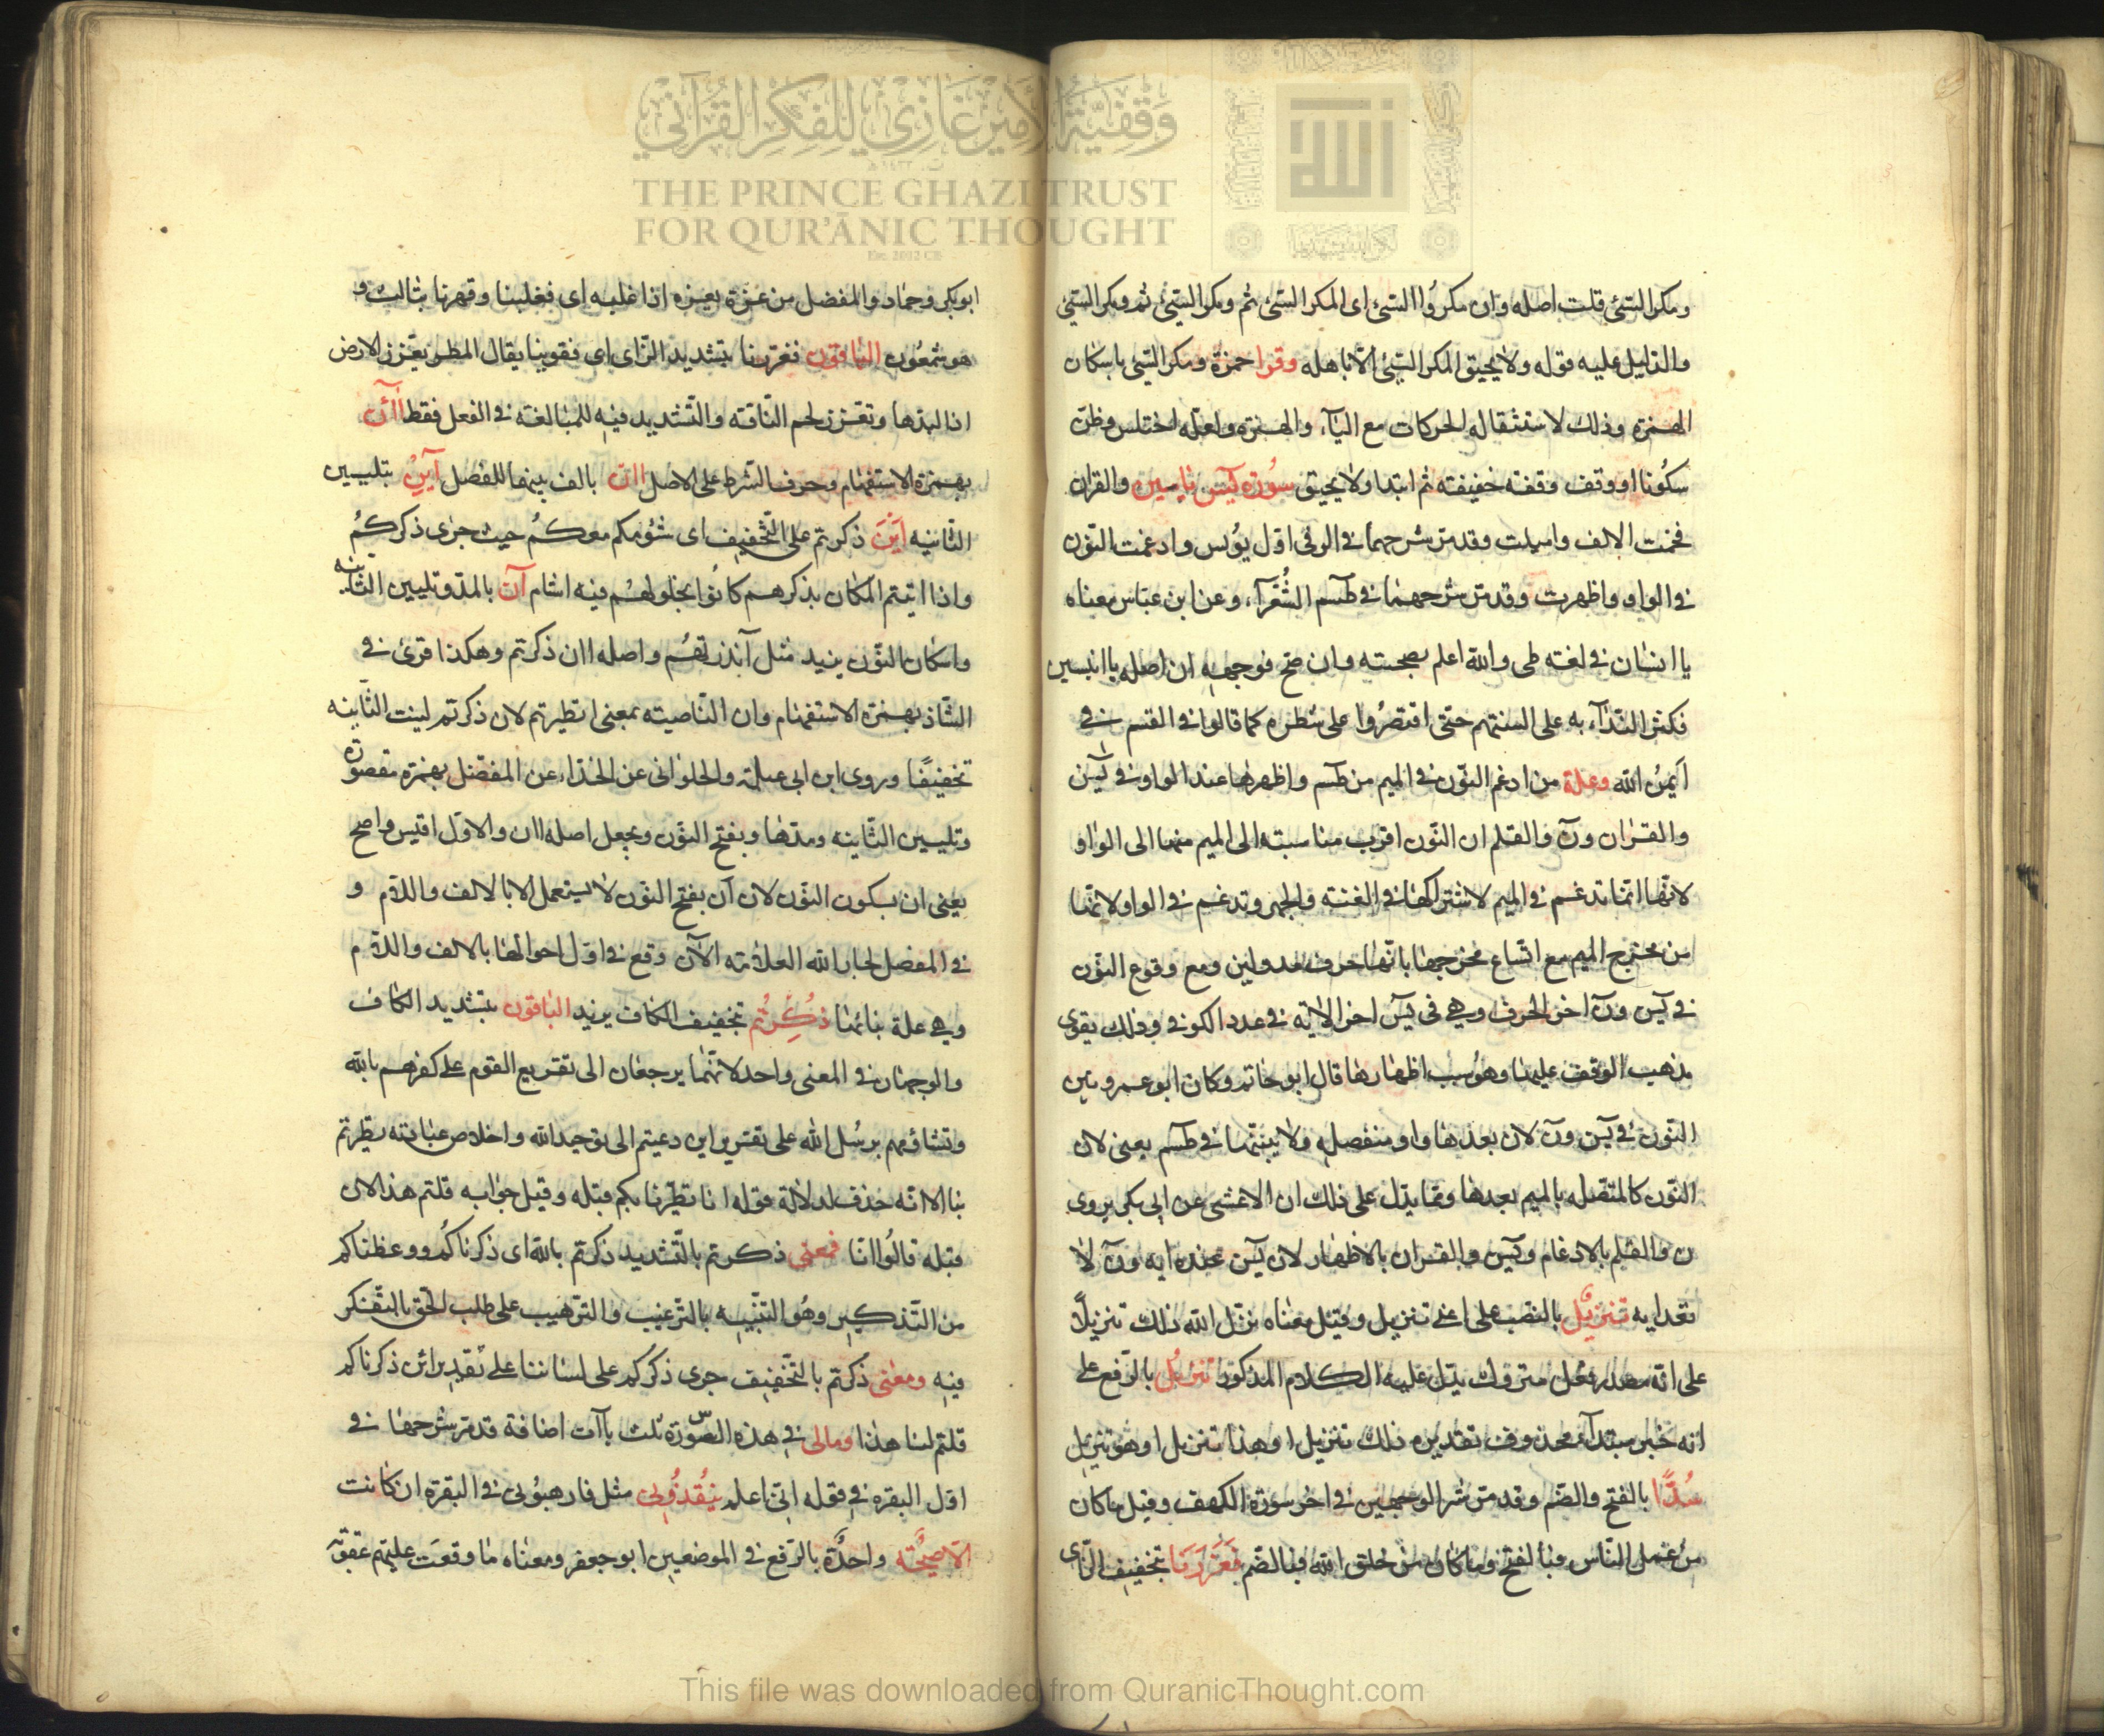 وقفية الأمير غازي للفكر القرآني
THE PRINCE GHAZI TRUST
FOR QUR'ĀNIC THOUGHT
Est. 2012 CE
الله
ومكر السيئ قلت اصله وان مكروا السيئ اى المكر السيئ ثم ومكرا السيئ ثم ومكر السيئ
والدليل عليه قوله ولا يحيق المكر السيئ الا باهله وقرا حمزة ومكر السيئ باسكان
الهمزة وذلك لاستثقاله الحركات مع الياء والهمزة ولعله اختلس وظن
سكونا او وقف وقفه خفيفته ثم ابتدا ولا يحيق سورة يس ياسين والقران
فخمت الالف واميلت وقد مر شرحهما فى الر فى اول يونس وادغمت النون
فى الواو واظهرت وقد مر شرحهما فى طسم الشعرآء وعن ابن عباس معناه
يا انسان فى لغته طى والله اعلم بصحته وان صح فوجهه ان اصله يا انيسين
فكثر الندآء به على السنتهم حتى اقتصروا على شطره كما قالوا فى القسم فى
ايمن الله وعلة من ادغم النون فى الميم من طسم واظهرها عند الواو فى يس
والقران ون والقلم ان النون اقرب مناسبته الى الميم منها الى الواو
لانها انما تدغم فى الميم لاشتراكها فى الغنه والجهر وتدغم فى الواو لانها
من مخرج الميم مع اتساع مخرجها بانها حرف مد ولين ومع وقوع النون
فى يس ون اخر الحرف وهي فى يس اخر الاية فى عدد الكوفى وذلك يقوى
مذهب الوقف عليها وهو سبب اظهارها قال ابو حاتم وكان ابو عمرو يبن
النون فى يس ون لان بعدها واو منفصله ولا يبنتها فى طسم يعنى لان
النون كالمتصله بالميم بعدها ومما يدل على ذلك ان الاعشى عن ابى بكر يروى
ن والقلم بالادغام ويس والقران بالاظهار لان يس عنده ايه ون لا
تعد ايه تنزيل بالنصب على اعنى تنزيل وقيل معناه نزل الله ذلك تنزيلا
على انه مصدر فعل متروك يدل عليه الكلام المذكور تنزيل بالرفع على
انه خبر مبتدآ محذوف تقديره ذلك تنزيل او هذا تنزيل او هو تنزيل
سدا بالفتح والضم وقد مر شر الوجهين فى اخر سورة الكهف وقيل ما كان
من عمل الناس فبالفتح وما كان من خلق الله فبالضم فعززنا بتخفيف الزاى
ابو بكر وحماد والمفضل من عزة يعزه اذا غلبه اى فغلبنا وقهرنا بثالث و
هو شمعون الباقون فعززنا بتشديد الزاى اى فقوينا يقال المطر يعزز الارض
اذا لبدها وتعزز لحم الناقه والتشديد فيه للمبالغته فى الفعل فقط اأن
بهمزة الاستفهام وحرف الشرط على الاصل اان بالف بينهما للفصل آين بتليين
الثانيه أين ذكرتم على التخفيف اى شؤمكم معكم حيث جرى ذكركم
واذا اتيتم المكان بذكرهم كانوا يحلو لهم فيه اشام آن بالمد وتليين الثانيه
واسكان النون يزيد مثل آنذرتهم واصله اان ذكرتم وهكذا قرئ فى
الشاذ بهمزة الاستفهام وان الناصيته بمعنى اتطيرتم لان ذكرتم لينت الثانيه
تخفيفا وروى ابن ابى عبلة والحلوانى عن الحذاء عن المفضل بهمزه مقصورة
وتليين الثانيه ومدها وبفتح النون ويجعل اصله اان والاول اقيس واصح
يعنى ان بسكون النون لان آن بفتح النون لا يستعمل الا بالالف واللام و
فى المفصل لجار الله العلامة الآن وقع فى اول احوالها بالالف واللام
وهي علة بنائها ذكرتم بتخفيف الكاف يزيد الباقون بتشديد الكاف
والوجهان فى المعنى واحد لانهما يرجعان الى تقريع القوم على كفرهم بالله
وتشاؤمهم برسل الله على تقرير اين دعيتم الى توحيد الله واخلاص عبادته تطيرتم
بنا الا انه حذف لدلالة قوله انا تطيرنا بكم قبله وقيل جوابه قلتم هذا لان
قبله قالوا انا فمعنى ذكرتم بالتشديد ذكرتم بالله اى ذكرناكم ووعظناكم
من التذكير وهو التنبيه بالترغيب والترهيب على طلب الحق بالتفكر
فيه ومعنى ذكرتم بالتخفيف جرى ذكركم على لساننا على تقدير ائن ذكرناكم
قلتم لنا هذا ومالى فى هذه السورة ثلث ياآت اضافة قد مر شرحها فى
اول البقره فى قوله انى اعلم ينقذونى مثل فارهبونى فى البقرة ان كانت
الا صيحة واحدة بالرفع فى الموضعين ابو جعفر ومعناه ما وقعت عليهم عقوبة
This file was downloaded from QuranicThought.com